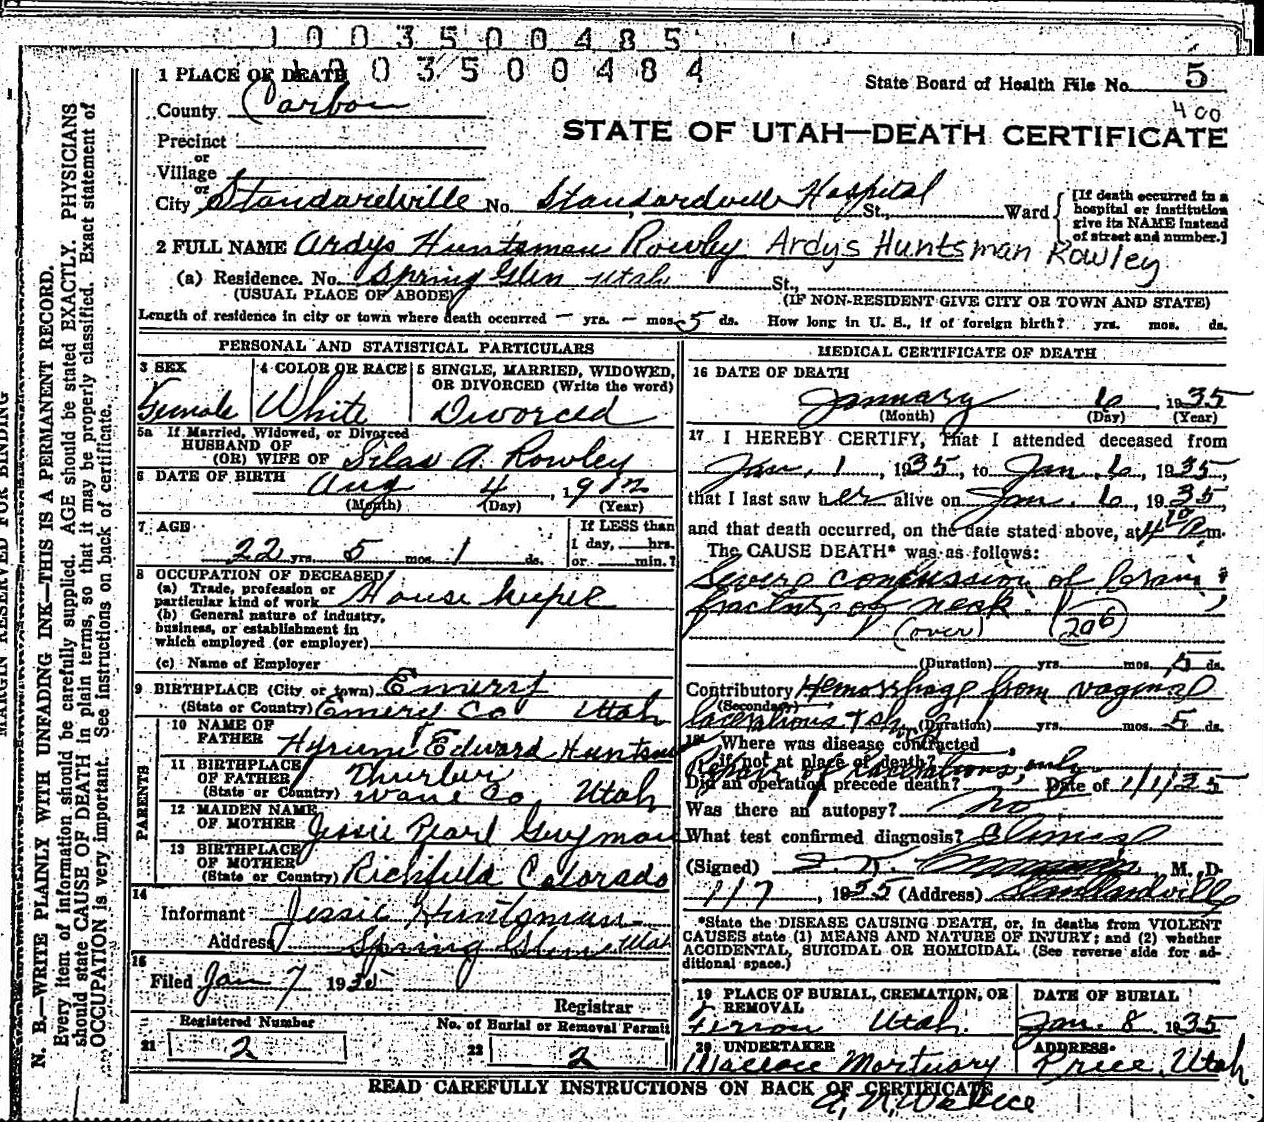 1 0 0 3 5 0 0 4 8 5
1 0 0 3 5 0 0 4 8 4
1 PLACE OF DEATH
State Board of Health File No. 5
County Carbon
400
STATE OF UTAH—DEATH CERTIFICATE
Precinct
or
Village
or
City Standardville No. Standardville Hospital St., Ward
[If death occurred in a hospital or institution give its NAME instead of street and number.]
2 FULL NAME Ardys Huntsman Rowley Ardys Huntsman Rowley
(a) Residence. No. Spring Glen Utah St.,
(USUAL PLACE OF ABODE) (IF NON-RESIDENT GIVE CITY OR TOWN AND STATE)
Length of residence in city or town where death occurred — yrs. — mos. 5 ds. How long in U. S., if of foreign birth? yrs. mos. ds.
PERSONAL AND STATISTICAL PARTICULARS
3 SEX Female
4 COLOR OR RACE White
5 SINGLE, MARRIED, WIDOWED, OR DIVORCED (Write the word) Divorced
5a If Married, Widowed, or Divorced
HUSBAND OF
(OR) WIFE OF Silas A. Rowley
6 DATE OF BIRTH Aug 4, 1912
(Month) (Day) (Year)
7 AGE
22 yrs. 5 mos. 1 ds.
If LESS than
1 day, hrs.
or min.?
8 OCCUPATION OF DECEASED
(a) Trade, profession or
particular kind of work House keeper
(b) General nature of industry,
business, or establishment in
which employed (or employer)
(c) Name of Employer
9 BIRTHPLACE (City or town) Emery
(State or Country) Emery Co Utah
PARENTS
10 NAME OF
FATHER Hyrum Edward Huntsman
11 BIRTHPLACE
OF FATHER Thurber
(State or Country) Wane Co Utah
12 MAIDEN NAME
OF MOTHER Jessie Pearl Guymon
13 BIRTHPLACE
OF MOTHER
(State or Country) Richfield Colorado
14
Informant Jessie Huntsman
Address Spring Glen Utah
15
Filed Jan 7 1935
Registrar
21 Registered Number 2
22 No. of Burial or Removal Permit 2
MEDICAL CERTIFICATE OF DEATH
16 DATE OF DEATH
January 6, 1935
(Month) (Day) (Year)
17 I HEREBY CERTIFY, That I attended deceased from
Jan. 1, 1935, to Jan. 6, 1935,
that I last saw her alive on Jan. 6, 1935,
and that death occurred, on the date stated above, at 4 10 a m.
The CAUSE DEATH* was as follows:
Severe concussion of brain
fracture of neck
(over) 206
(Duration) yrs. mos. 5 ds.
Contributory Hemorrhage from vaginal
(Secondary)
lacerations + shock (Duration) yrs. mos. 5 ds.
18 Where was disease contracted
if not at place of death?
Repair of lacerations, only
Did an operation precede death? Date of 1/1/35
Was there an autopsy? No
What test confirmed diagnosis? Clinical
(Signed) M. D.
1/7, 1935 (Address) Standardville
*State the DISEASE CAUSING DEATH, or, in deaths from VIOLENT
CAUSES state (1) MEANS AND NATURE OF INJURY; and (2) whether
ACCIDENTAL, SUICIDAL OR HOMICIDAL. (See reverse side for ad-
ditional space.)
19 PLACE OF BURIAL, CREMATION, OR
REMOVAL
Ferron Utah
DATE OF BURIAL
Jan. 8 1935
20 UNDERTAKER
Wallace Mortuary
ADDRESS
Price, Utah
READ CAREFULLY INSTRUCTIONS ON BACK OF CERTIFICATE
MARGIN RESERVED FOR BINDING
N. B.—WRITE PLAINLY WITH UNFADING INK—THIS IS A PERMANENT RECORD.
Every item of information should be carefully supplied. AGE should be stated EXACTLY. PHYSICIANS
should state CAUSE OF DEATH in plain terms, so that it may be properly classified. Exact statement of
OCCUPATION is very important. See instructions on back of certificate.